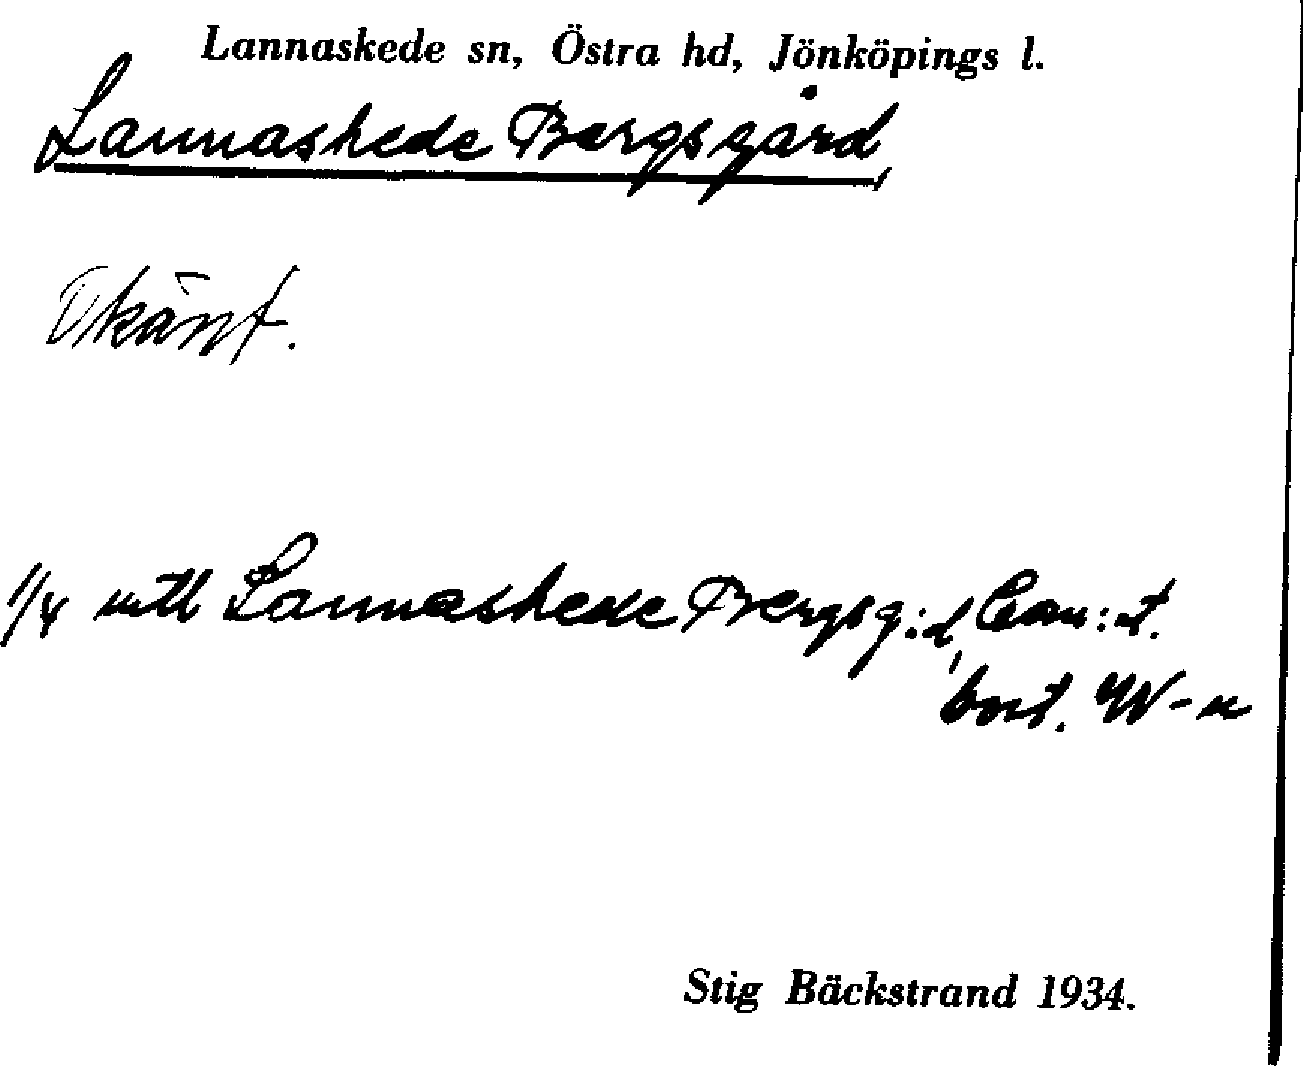 Lannaskede sn, Östra hd, Jönköpings l.
Lannaskede Bergsgård,
Okänt.
1/4 mtl Lannaskede Bergsg:d, Cam:t.
bost. W-u
Stig Bäckstrand 1934.